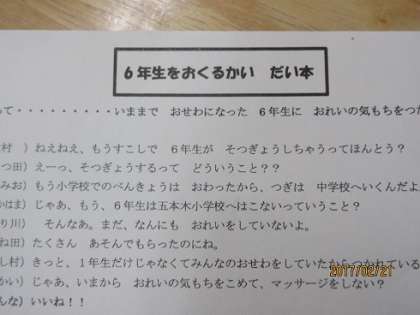 ６年生をおくるかい　だい本
って・・・・・・・・・いままで　おせわになった　６年生に　おれいの気もちをつた
村　）ねえねえ、もうすこしで　６年生が　そつぎょうしちゃうってほんとう？
つ田）えーっ、そつぎょうするって　どういうこと？？
みお）もう小学校でのべんきょうは　おわったから、つぎは　中学校へいくんだよ
かはま）じゃあ、もう、６年生は五本木小学校へはこないっていうこと？
り川）　そんなあ。まだ、なんにも　おれいをしていないよ。
ね田）たくさん　あそんでもらったのにね。
し村）きっと、１年生だけじゃなくてみんなのおせわをしていたからつかれている
かい）じゃあ、いまから　おれいの気もちをこめて、マッサージをしない？
んな）いいね！！
2017/02/21